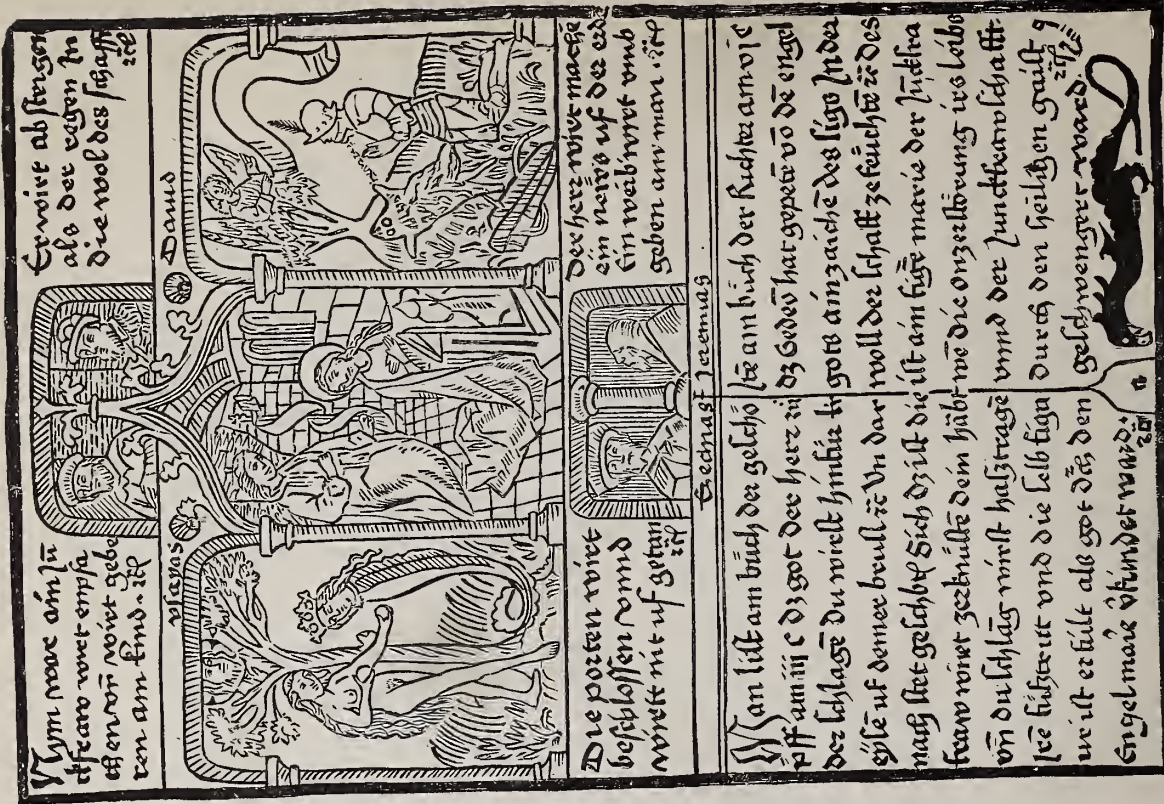 Nym war ain Jū
ckfraw wirt empfa
chen vn̄ wirt gebe
ren ain kind.
Er wirt ab steigen
als der regen In
die wol des schaff
ysayas
Dauid
Die porten wirt
beschlossen vnnd
wirtt nit uf getan
Der herr wirt mache
ein news uf der erd
Ein weib wirt vmb
geben ain man
Jeremias
Man list am büch der geschö
pff am iii c dz got der herr zü
der schlāge Du wirst hinfür kr
eysse uf deiner brust ꝛc Vn dar
nach stet Sich dz ist die
fraw wirt dein häbt
vn̄ du schlāg wirst halsztragē
Ire füsstritt vnd die selb figu
ur ist erfült als got den
Engel marie ward:
am büch der Richter am vi c
dz Gedeō hat gepetē vō dē engel
gots ain zaichē des sigs In der
woll der schaff zefeüchtē ꝛc des
ist ain marie der Junckfra
wē die on zerstörung irs leibs
vnnd der Junckfrawschafft
durch den heiligen gaist
geschwengert ward